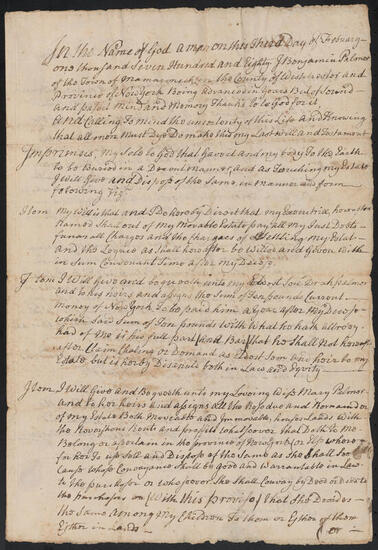 In the Name of God amen on this Third Day of Februay
one thousand Seven Hundred and Eighty I Benjamin Palmer
of the Town of Mamaroneck in the County of Westchester and
Province of New York Being Advanced in years But of Sound
and perfect mind and Memory Thanks be to God for it,
And Calling To mind the uncertenty of this Life and Knowing
that all men Must Dye Do make this my Last Will and Testament
Imprimes, my Sole to God that Gave it and my body To the Earth
to be Buried in a Decent manner, and as Touching my Estate
I will Give and Dispose of the Same in manner and form
following Viz
Item my will is that and I Do hereby Direct that my Executrix hereafter
Named Shall out of My Movable Estate pay all my Just Debts
funeral Charges and the Chargers of Settling my Estate
and the Legice as Shall hereafter be Willed and Given with
in Sum Convenant Time after my Decese
Item I Will Give and bequeath unto my Eldest Son
and to his heirs and asigns the Sum of Ten pounds Current
money of New York To be paid him a year after My Decese
which Said Sum of Ten pounds with what he hath allredy
had of me is his full part and that he Shall not here
after Claim Chaling or Demand as Eldest Son one heir to my
Estate but is herby Debared both in Law and Equity
Item I Will Give and Beqveeth unto my Loveing Wife Mary Palmer
and to her heirs and assigns all the Residue and Remaindor
of my Estate Both Moveable and Lands with
the Revershons Rents and profits whatsoever that Doth to Me
Belong or apertain in the province of New York or Else where
for her To Sell and Dispose of the Same as She Shall See
Caus whose Conveyance Shall be good and Warrantable in Law
to the purchesor or whosoever She Shall Convay by Deed or
the purcheses on With this proviso that She Devides
the Same Among my Children To them or Either of them
Either in Lands
or